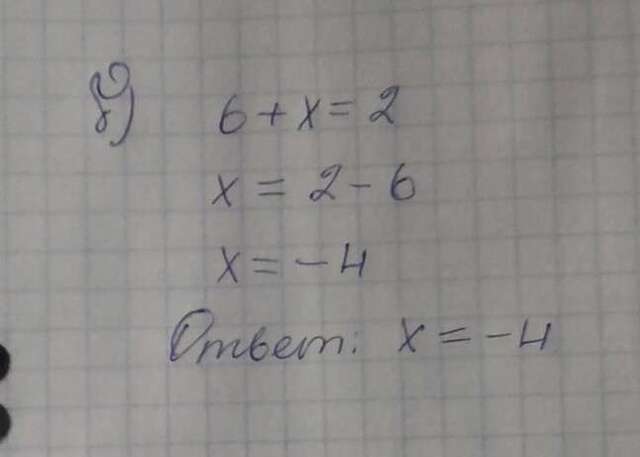 б) 6 + x = 2
x = 2 - 6
x = - 4
Ответ: x = - 4